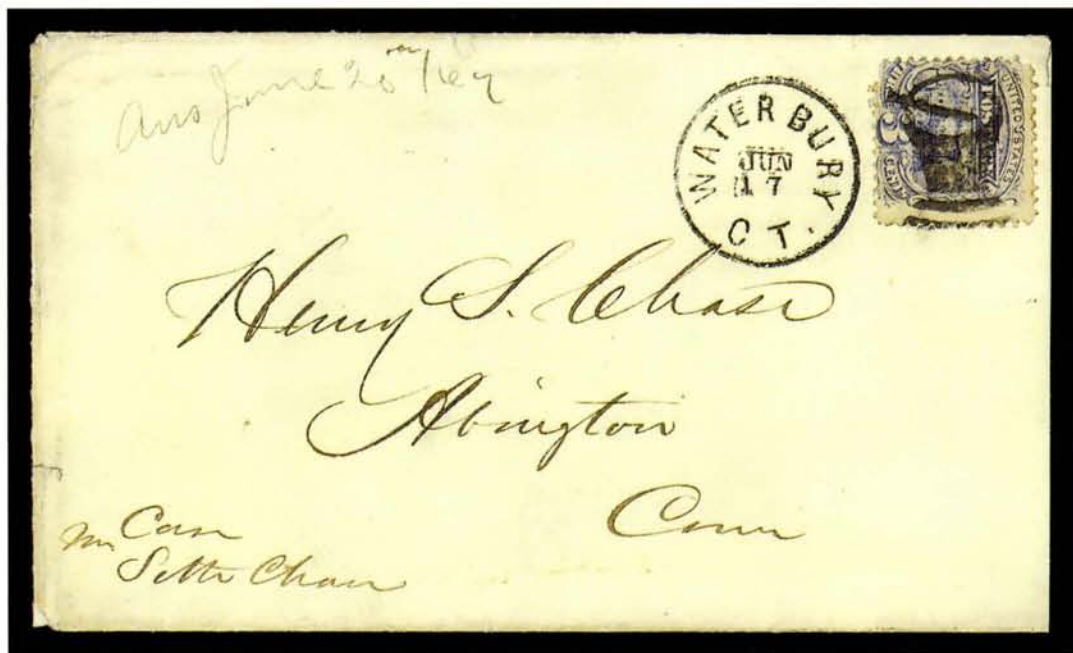 Ans June 20th/69
WATERBURY
JUN
17
CT.
UNITED STATES
POSTAGE
3
CENTS
Henry S. Chase
Abington
Conn
Care
Seth Chase